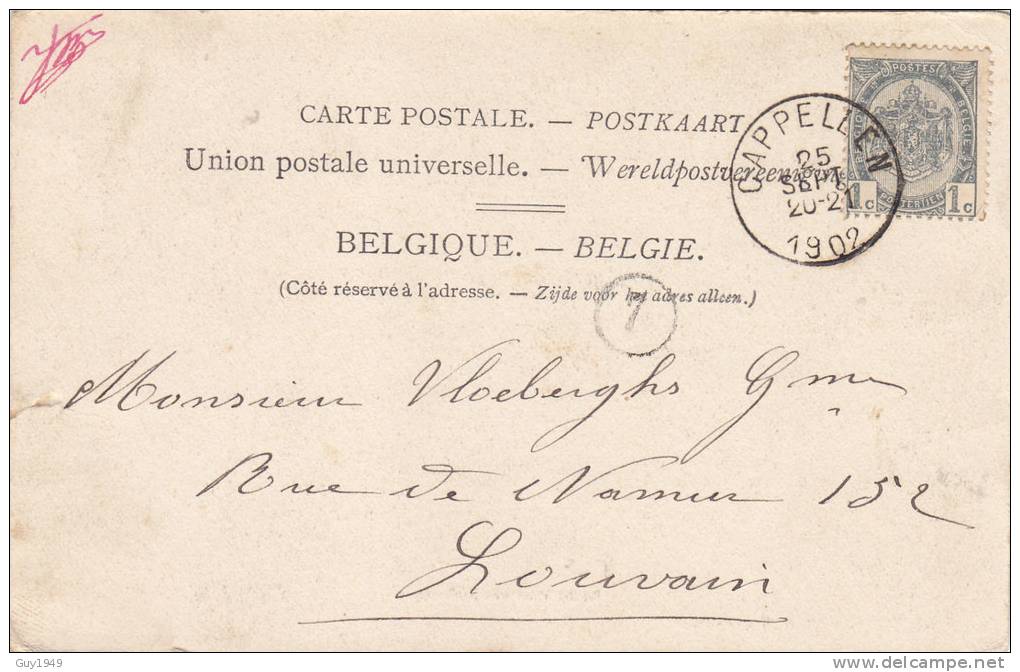 CARTE POSTALE. — POSTKAART
Union postale universelle. — Wereldpostvereeniging
BELGIQUE. — BELGIE.
(Côté réservé à l'adresse. — Zijde voor het adres alleen.)
POSTES
BELGIQUE BELGIE
1c POSTERIJEN 1c
CAPPELLEN
25
SEPT
20-21
1902
7
Monsieur Vloeberghs Gme
Rue de Namur 152
Louvain
Guy1949
delcampe.net